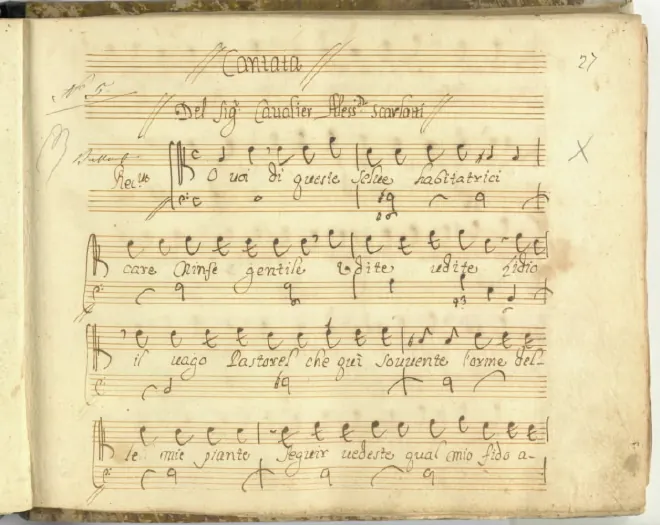 Cantata
27
Del Sig.r Cavalier Aless.o Scarlatti
Rec.vo
O voi di queste selve habitatrici
care Ninfe gentile Udite udite Lidio
il vago Pastorel che quì souvente l'orme del-
le mie piante seguir vedeste qual mio fido a-